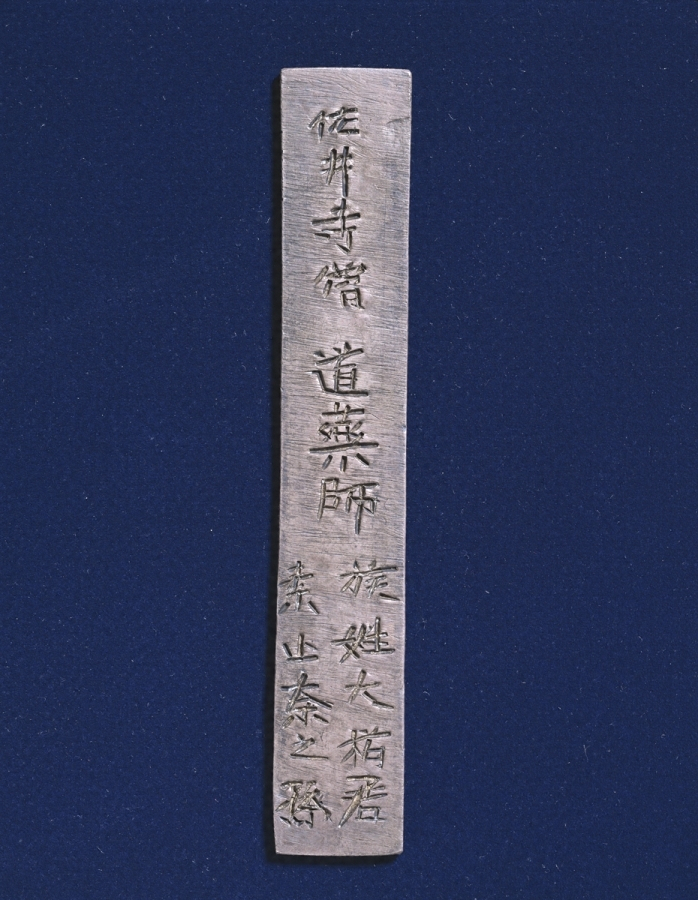 佐井寺僧 道薬師
族姓大楢君
素止奈之孫